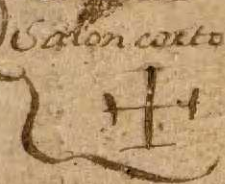 Salon corto